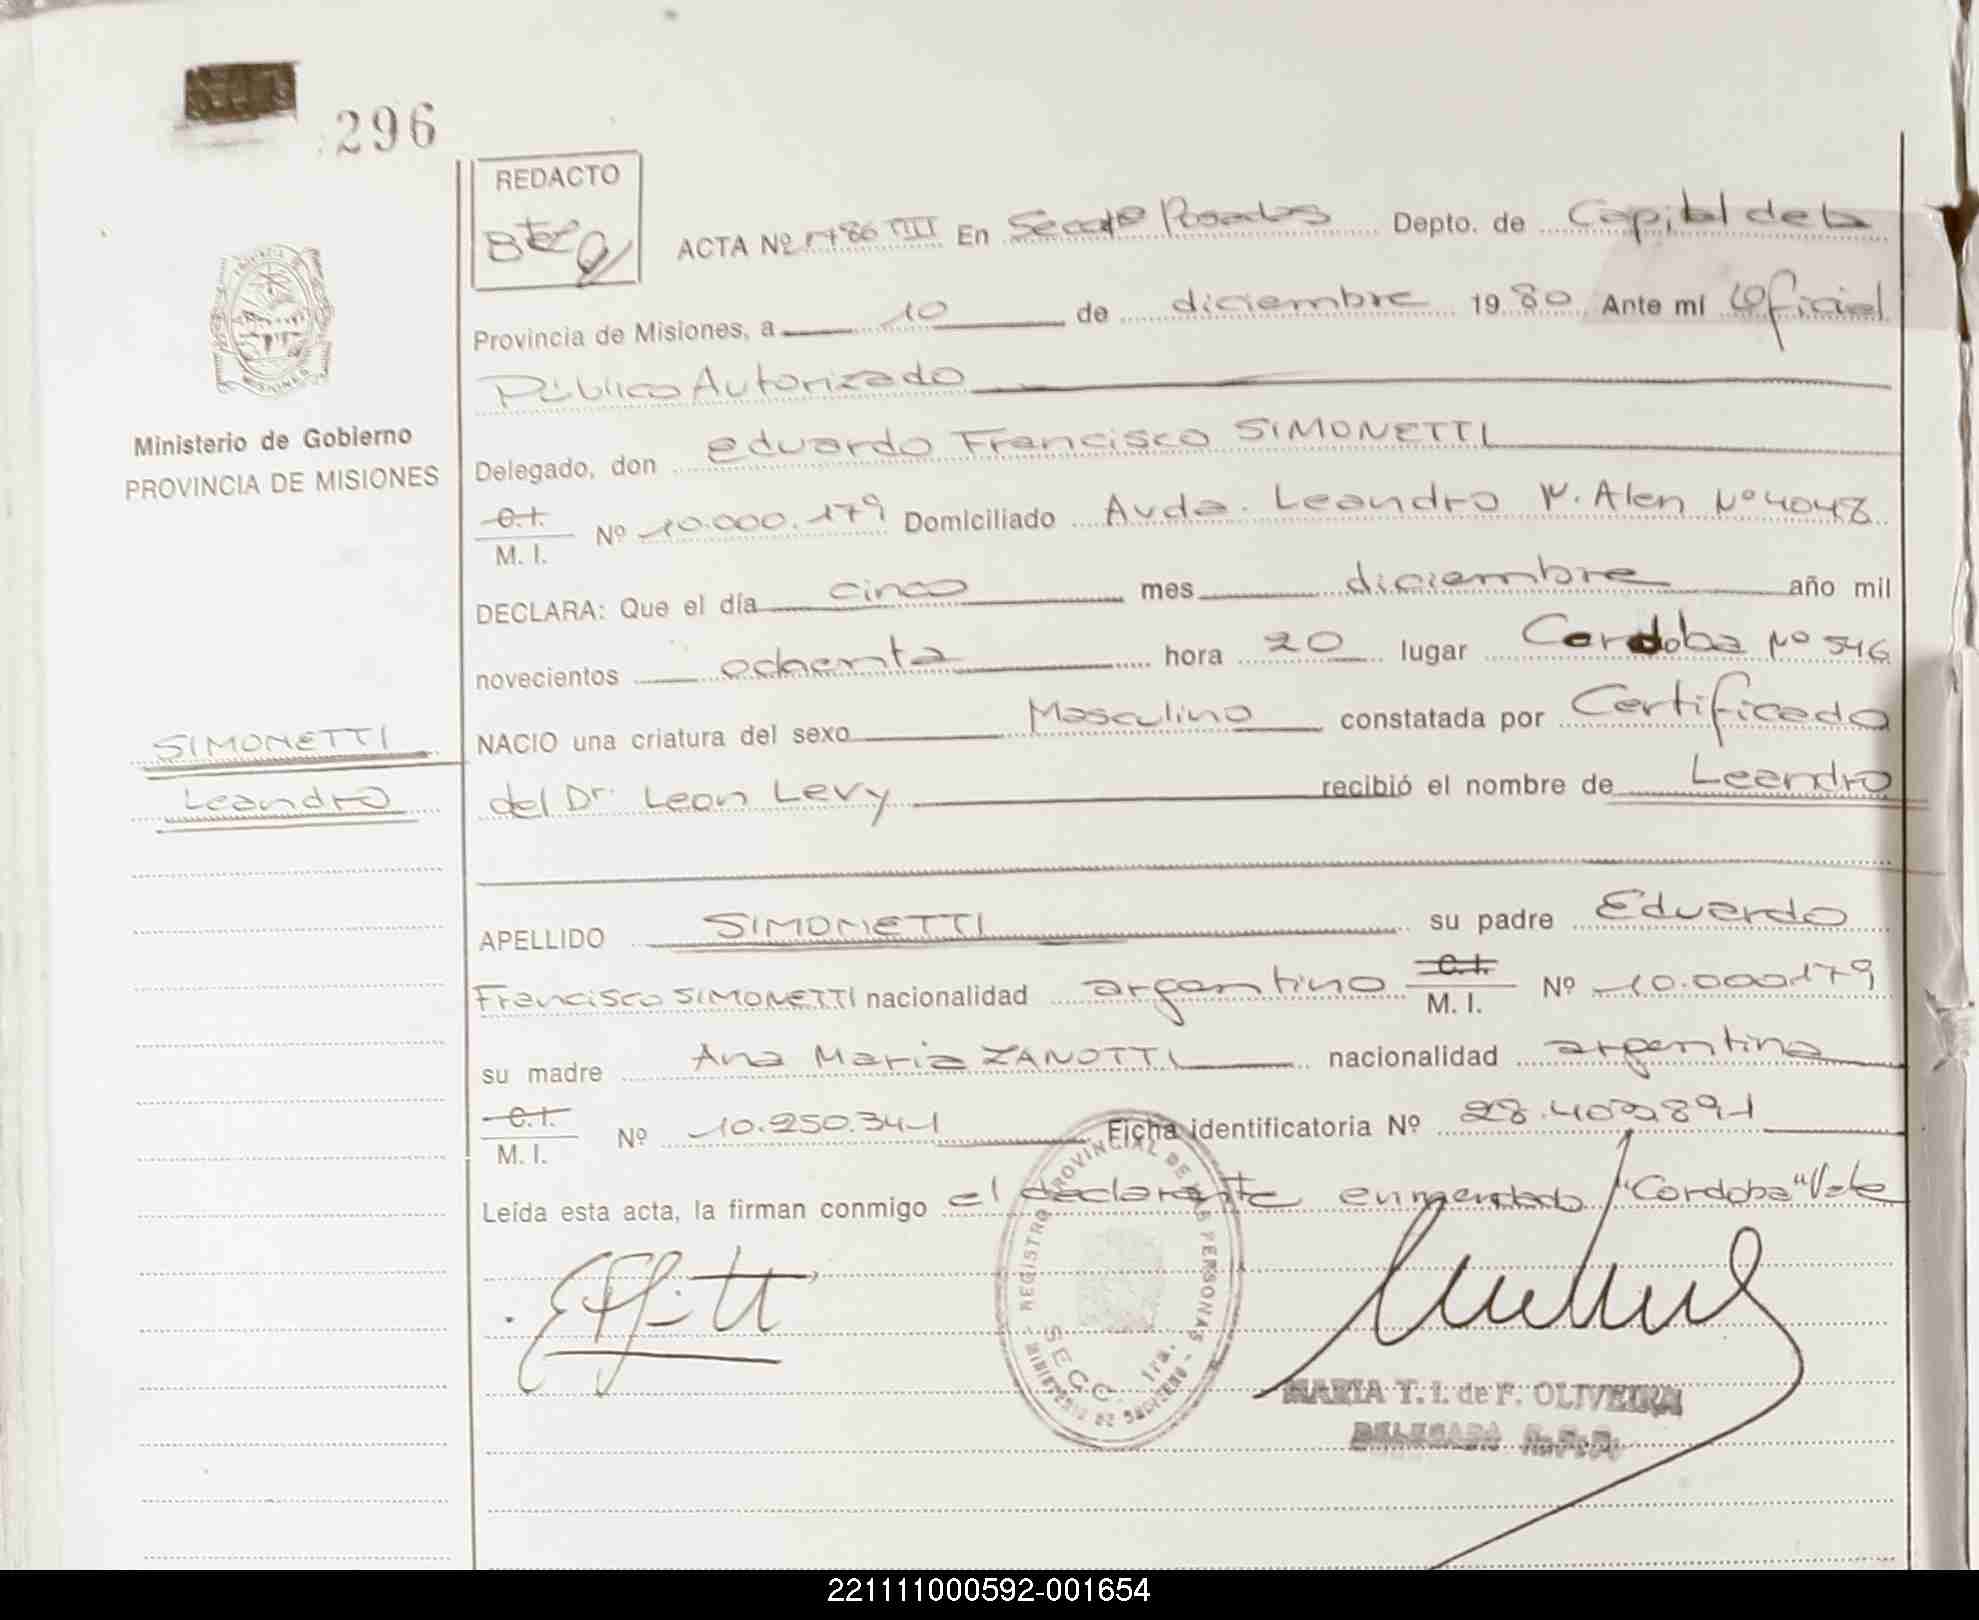 296
REDACTO
ACTA Nº 1786 TIII En Secc 1º Posadas Depto. de Capital de la
Provincia de Misiones, a 10 de diciembre 1980 Ante mí Oficial
Público Autorizado
MISIONES
Ministerio de Gobierno
PROVINCIA DE MISIONES
Delegado, don eduardo Francisco SIMONETTI
C.I.
M. I. Nº 10.000.179 Domiciliado Avda. Leandro N. Alen Nº 4048
DECLARA: Que el día cinco mes diciembre año mil
novecientos ochenta hora 20 lugar Cordoba Nº 546
NACIO una criatura del sexo Masculino constatada por Certificado
SIMONETTI
Leandro
del Dr. Leon Levy recibió el nombre de Leandro
APELLIDO SIMONETTI su padre Eduardo
Francisco SIMONETTI nacionalidad argentino C.I. M. I. Nº 10.000179
su madre Ana Maria ZANOTTI nacionalidad argentina
C.I.
M. I. Nº 10.250.341 Ficha identificatoria Nº 28.402891
Leída esta acta, la firman conmigo el declarante enmendado "Cordoba" Vale
REGISTRO PROVINCIAL DE LAS PERSONAS - MINISTERIO DE GOBIERNO
SECC. 1ra.
MARIA T. I. de F. OLIVEIRA
DELEGADA R.P.P.
221111000592-001654